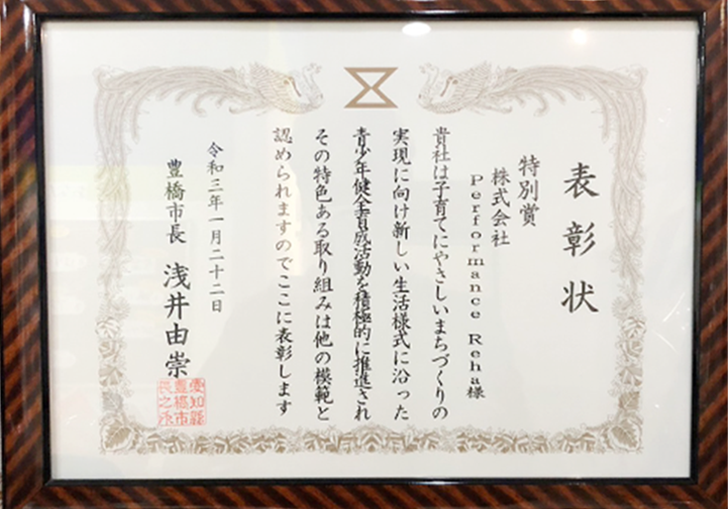 表彰状
特別賞
株式会社
Performance Reha様
貴社は子育てにやさしいまちづくりの
実現に向け新しい生活様式に沿った
青少年健全育成活動を積極的に推進され
その特色ある取り組みは他の模範と
認められますのでここに表彰します
令和三年一月二十二日
豊橋市長 浅井由崇
愛知縣
豊橋市
長之印